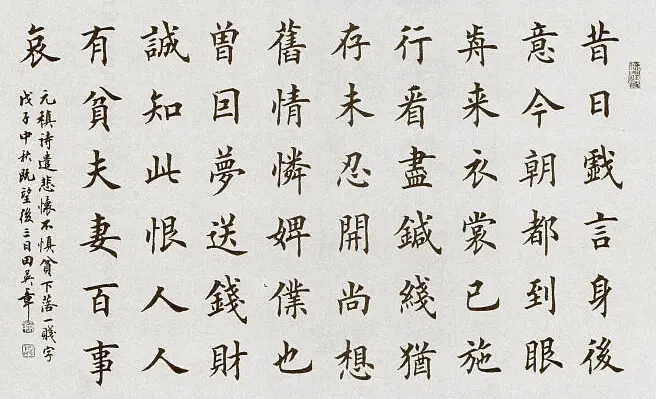 昔日戲言身後
意今朝都到眼
歬来衣裳已施
行看盡鍼綫猶
存未忍開尚想
舊情憐婢僕也
曾囙夢送錢財
誠知此恨人人
有貧夫妻百事
哀
元稹詩遣悲懷不慎貧下落一賤字
戊子中秋既望後三日田英章